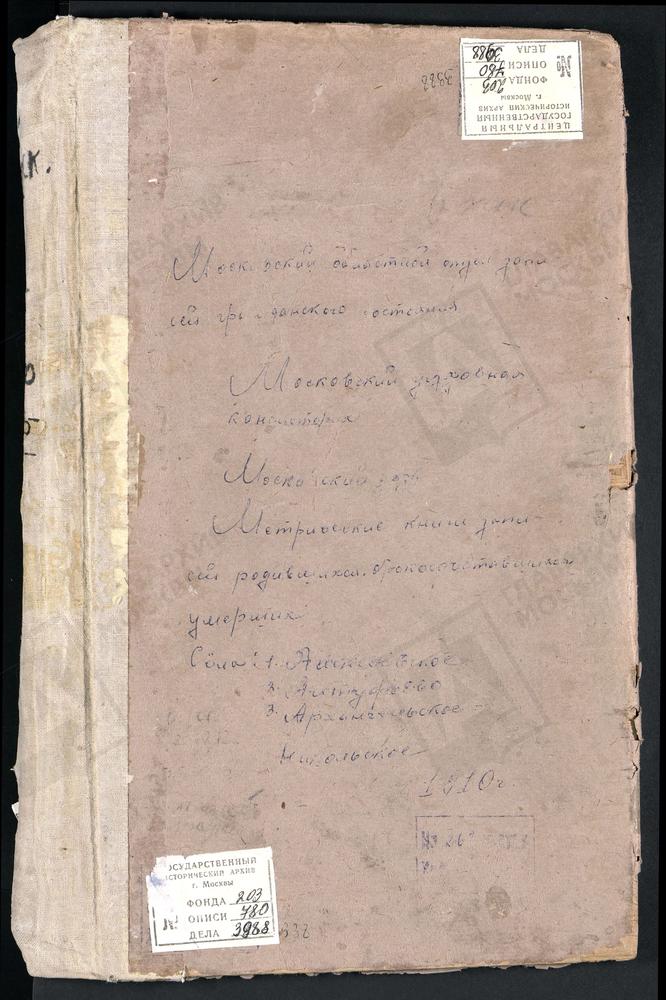 ЦЕНТРАЛЬНЫЙ
ГОСУДАРСТВЕННЫЙ
ИСТОРИЧЕСКИЙ АРХИВ
г. Москвы
ФОНДА 203
№ ОПИСИ 780
ДЕЛА 3988
3988
Московский областной отдел запи
сей гражданского состояния
Московский духовная
консистория
Московский уезд
Метрические книги запи-
сей родившихся, бракосочетавшихся
умерших
Села: 1. Алексеевское
2. Алтуфьево
3. Архангельское -
Никольское
1910 г.
ГОСУДАРСТВЕННЫЙ
ИСТОРИЧЕСКИЙ АРХИВ
г. Москвы
ФОНДА 203
№ ОПИСИ 780
ДЕЛА 3988